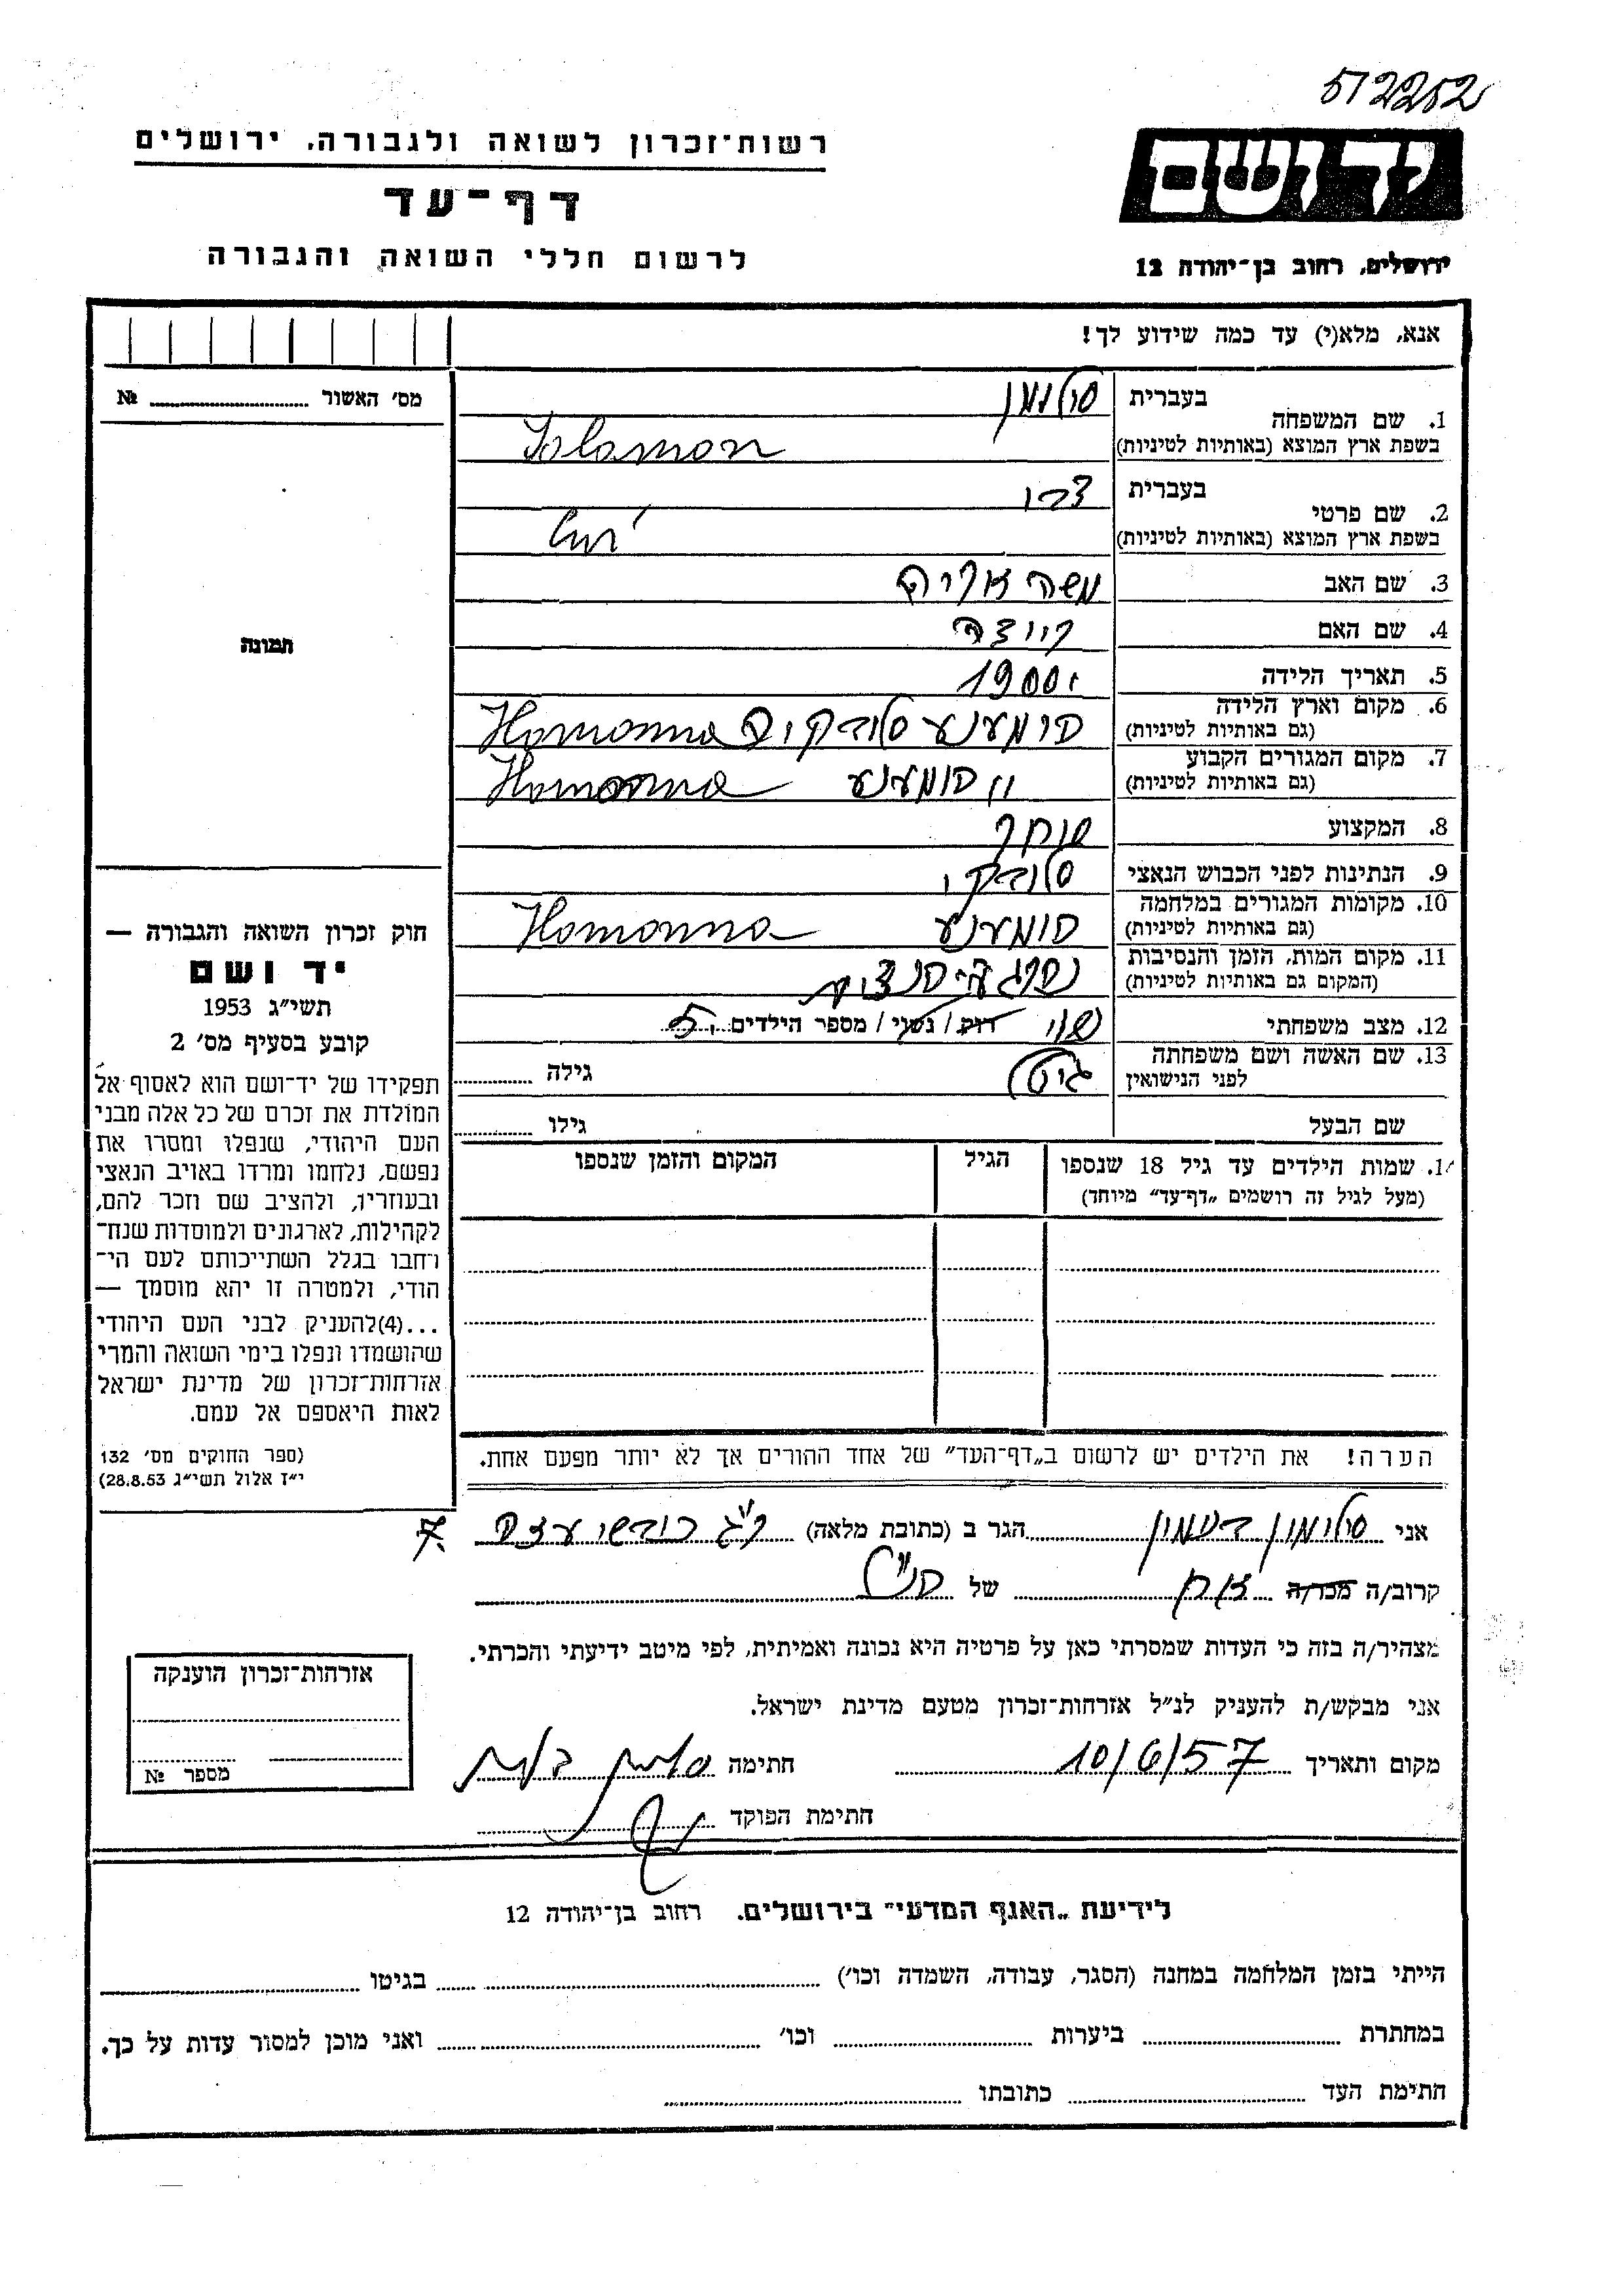 512252
רשות־זכרון לשואה ולגבורה, ירושלים
יד ושם
דף־עד
לרשום חללי השואה והגבורה
ירושלים, רחוב בן־יהודה 12
אנא, מלא(י) עד כמה שידוע לך!
מס' האשור № 
1. שם המשפחה בעברית סולומון
בשפת ארץ המוצא (באותיות לטיניות) Solamon
2. שם פרטי בעברית
בשפת ארץ המוצא (באותיות לטיניות)
3. שם האב משה אריה
4. שם האם
5. תאריך הלידה 1900
6. מקום וארץ הלידה הומענע סלובקיה Homonna
(גם באותיות לטיניות)
7. מקום המגורים הקבוע הומענע Homonna
(גם באותיות לטיניות)
8. המקצוע סוחר
9. הנתינות לפני הכבוש הנאצי סלובקי
10. מקומות המגורים במלחמה הומענע Homonna
(גם באותיות לטיניות)
11. מקום המות, הזמן והנסיבות נהרג
(המקום גם באותיות לטיניות)
12. מצב משפחתי נשוי רווק / נשוי / מספר הילדים 5
13. שם האשה ושם משפחתה גיטל גילה
לפני הנישואין
שם הבעל גילו
14. שמות הילדים עד גיל 18 שנספו הגיל המקום והזמן שנספו
(מעל לגיל זה רושמים „דף־עד" מיוחד)
הערה! את הילדים יש לרשום ב„דף־העד" של אחד ההורים אך לא יותר מפעם אחת.
תמונה
חוק זכרון השואה והגבורה —
יד ושם
תשי"ג 1953
קובע בסעיף מס' 2
תפקידו של יד־ושם הוא לאסוף אל
המולדת את זכרם של כל אלה מבני
העם היהודי, שנפלו ומסרו את
נפשם, נלחמו ומרדו באויב הנאצי
ובעוזריו, ולהציב שם וזכר להם,
לקהילות, לארגונים ולמוסדות שנח־
רבו בגלל השתייכותם לעם הי־
הודי, ולמטרה זו יהא מוסמך —
...(4)להעניק לבני העם היהודי
שהושמדו ונפלו בימי השואה והמרי
אזרחות־זכרון של מדינת ישראל
לאות היאספם אל עמם.
(ספר החוקים מס' 132
י"ז אלול תשי"ג 28.8.53)
אני סולומון הגר ב (כתובת מלאה)
קרוב/ה מכר/ה אח של הנ"ל
מצהיר/ה בזה כי העדות שמסרתי כאן על פרטיה היא נכונה ואמיתית, לפי מיטב ידיעתי והכרתי.
אני מבקש/ת להעניק לנ"ל אזרחות־זכרון מטעם מדינת ישראל.
מקום ותאריך 10/6/57 חתימה
חתימת הפוקד
אזרחות־זכרון הוענקה
מספר №
לידיעת „האגף המדעי" בירושלים. רחוב בן־יהודה 12
הייתי בזמן המלחמה במחנה (הסגר, עבודה, השמדה וכו') בגיטו
במחתרת ביערות וכו' ואני מוכן למסור עדות על כך.
חתימת העד כתובתו